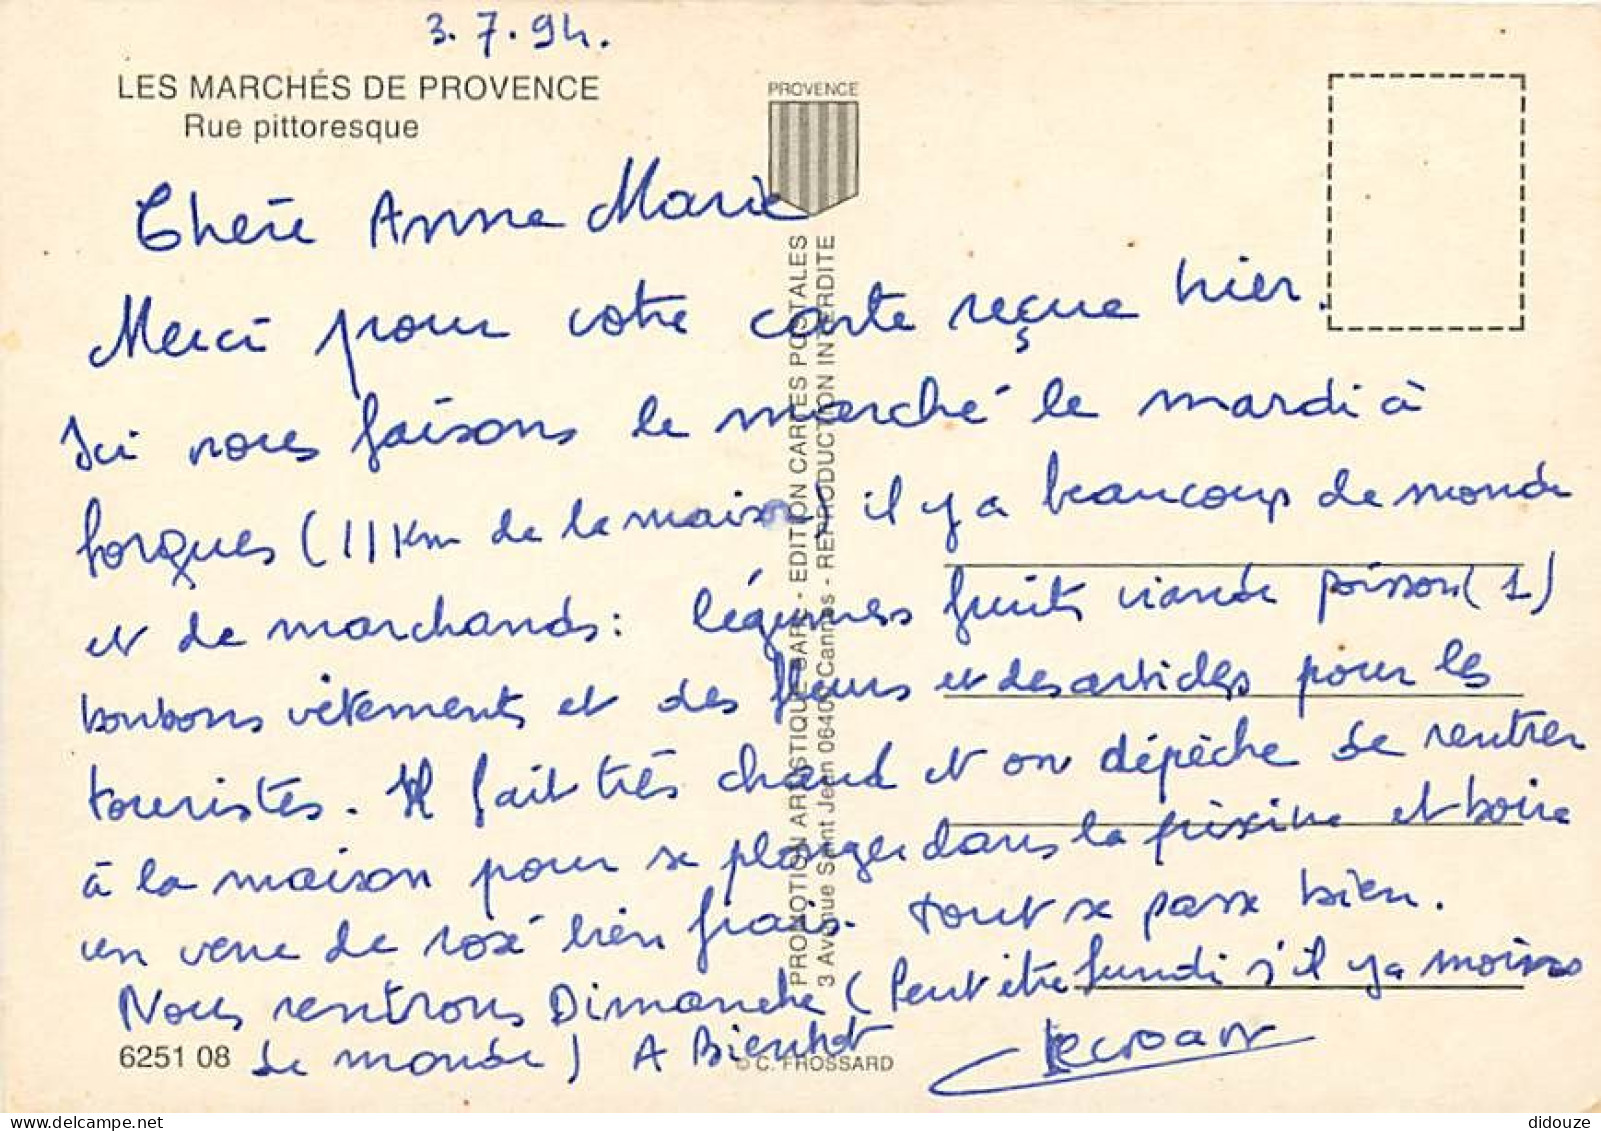 3.7.94.
LES MARCHÉS DE PROVENCE
Rue pittoresque
PROVENCE
Chère Anne Marie
Merci pour votre carte reçue hier.
Ici nous faisons le marché le mardi à
Lorgues (11 Km de la maison) il y a beaucoup de monde
et de marchands : légumes fruits viande poisson (1)
bonbons vêtements et des fleurs et des articles pour les
touristes. Il fait très chaud et on dépèche de rentrer
à la maison pour se plonger dans la piscine et boire
un verre de rosé bien frais. tout se passe bien.
Nous rentrons Dimanche (Peut être lundi s'il y a moins
de monde) A Bientot
PROMOTION ARTISTIQUE GARI - EDITION CARTES POSTALES
3 Avenue Saint Jean 06400 Cannes - REPRODUCTION INTERDITE
6251 08
© C. FROSSARD
didouze - delcampe.net